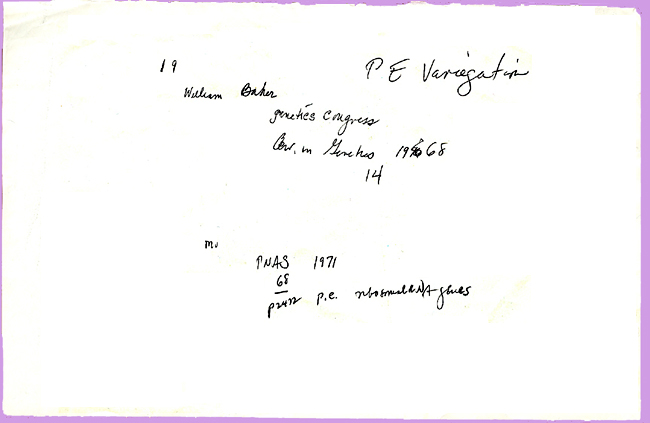 19
P E Variegation
William Baker
genetics Congress
Adv. in Genetics 1968
14
Mo
PNAS 1971
68
p2472 p.e. ribosomal RNA genes